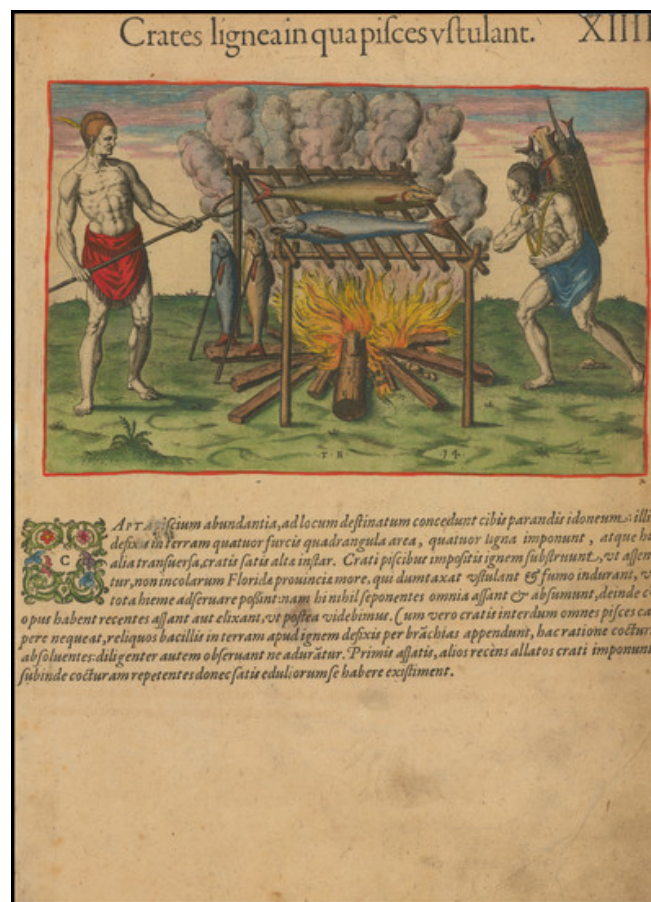 Crates lignea in qua pisces vstulant. XIIII
T B 14.
CAPTA piscium abundantia, ad locum destinatum concedunt cibis parandis idoneum: illi
defixis in terram quatuor furcis quadrangula area, quatuor ligna imponunt, atque hi
alia transuersa, cratis satis alta instar. Crati piscibus impositis ignem substruunt, vt assen
tur, non incolarum Floridæ prouinciæ more, qui dumtaxat vstulant & fumo indurant, v
tota hieme adseruare possint: nam hi nihil seponentes omnia assant & absumunt, deinde c
opus habent recentes assant aut elixant, vt postea videbimus. Cum vero cratis interdum omnes pisces ca
pere nequeat, reliquos bacillis in terram apud ignem defixis per brãchias appendunt, hac ratione coctur
absoluentes: diligenter autem obseruant ne adurãtur. Primis assatis, alios recens allatos crati imponunt
subinde cocturam repetentes donec satis eduliorum se habere existiment.